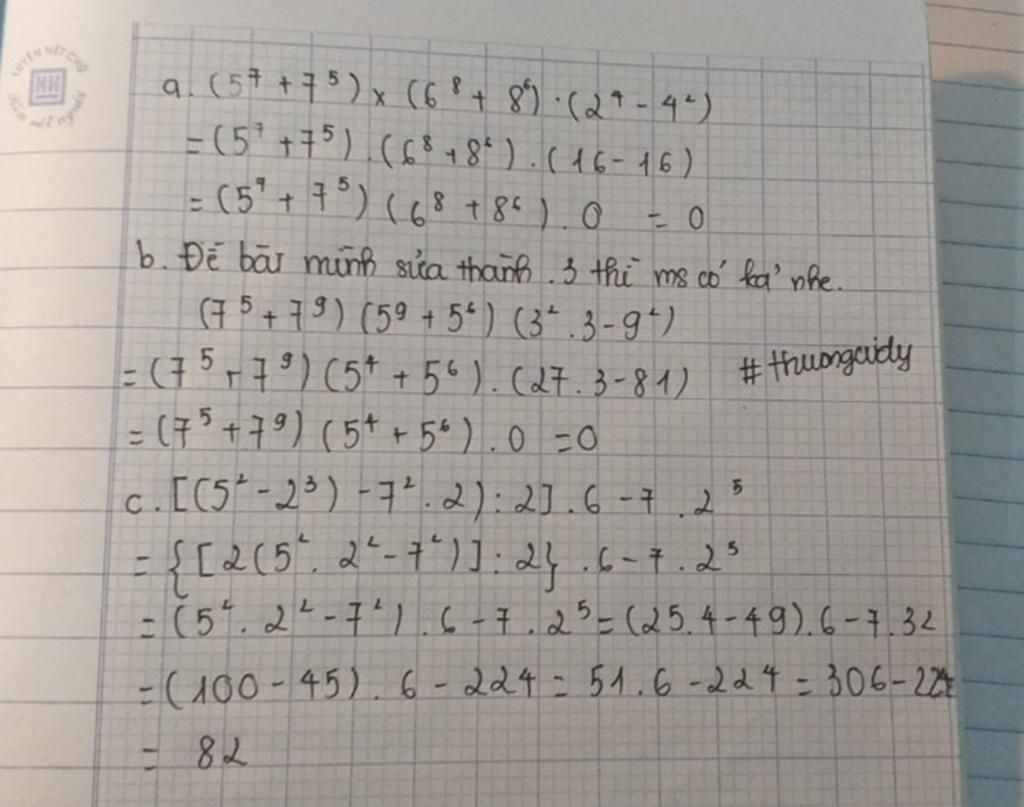 LUYỆN NÉT CHỮ
NH
Rèn nết người
a. (5⁷ + 7⁵) x (6⁸ + 8⁶) · (2⁴ - 4²)
= (5⁷ + 7⁵) . (6⁸ + 8⁶) . (16 - 16)
= (5⁷ + 7⁵) (6⁸ + 8⁶) . 0 = 0
b. Đề bài mình sửa thành .3 thì ms có kq' nhe.
(7⁵ + 7⁹) (5⁹ + 5⁶) (3² . 3 - 9²)
= (7⁵ + 7⁹) (5⁴ + 5⁶) . (27 . 3 - 81)
#thuongcuidy
= (7⁵ + 7⁹) (5⁴ + 5⁶) . 0 = 0
c. [(5² - 2³) - 7² . 2) : 2] . 6 - 7 . 2⁵
= {[2(5² . 2² - 7²)] : 2} . 6 - 7 . 2⁵
= (5² . 2² - 7²) . 6 - 7 . 2⁵ = (25.4 - 49) . 6 - 7 . 32
= (100 - 45) . 6 - 224 = 51 . 6 - 224 = 306 - 224
= 82